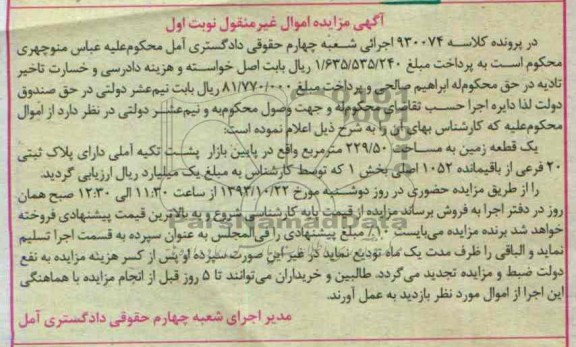 آگهی مزایده اموال غیرمنقول نوبت اول
در پرونده کلاسه ۹۳۰۰۷۴ اجرائی شعبه چهارم حقوقی دادگستری آمل محکوم‌علیه عباس منوچهری
محکوم است به پرداخت مبلغ ۱/۶۳۵/۵۳۵/۲۴۰ ریال بابت اصل خواسته و هزینه دادرسی و خسارت تاخیر
تادیه در حق محکوم‌له ابراهیم صالحی و پرداخت مبلغ ۸۱/۷۷۰/۰۰۰ ریال بابت نیم‌عشر دولتی در حق صندوق
دولت لذا دایره اجرا حسب تقاضای محکوم‌له و جهت وصول محکوم‌به و نیم‌عشر دولتی در نظر دارد از اموال
محکوم‌علیه که کارشناس بهای آن را به شرح ذیل اعلام نموده است:
یک قطعه زمین به مساحت ۲۲۹/۵۰ مترمربع واقع در پایین بازار پشت تکیه آملی دارای پلاک ثبتی
۲۰ فرعی از باقیمانده ۱۰۵۲ اصلی بخش ۱ که توسط کارشناس به مبلغ یک میلیارد ریال ارزیابی گردید.
را از طریق مزایده حضوری در روز دوشنبه مورخ ۱۳۹۳/۱۰/۲۲ از ساعت ۱۱:۳۰ الی ۱۲:۳۰ صبح همان
روز در دفتر اجرا به فروش برساند مزایده از قیمت پایه کارشناسی شروع و به بالاترین قیمت پیشنهادی فروخته
خواهد شد برنده مزایده می‌بایست ۱۰٪ مبلغ پیشنهادی را فی‌المجلس به عنوان سپرده به قسمت اجرا تسلیم
نماید و الباقی را ظرف مدت یک ماه تودیع نماید در غیر این صورت سپرده او پس از کسر هزینه مزایده به نفع
دولت ضبط و مزایده تجدید می‌گردد. طالبین و خریداران می‌توانند تا ۵ روز قبل از انجام مزایده با هماهنگی
این اجرا از اموال مورد نظر بازدید به عمل آورند.
مدیر اجرای شعبه چهارم حقوقی دادگستری آمل